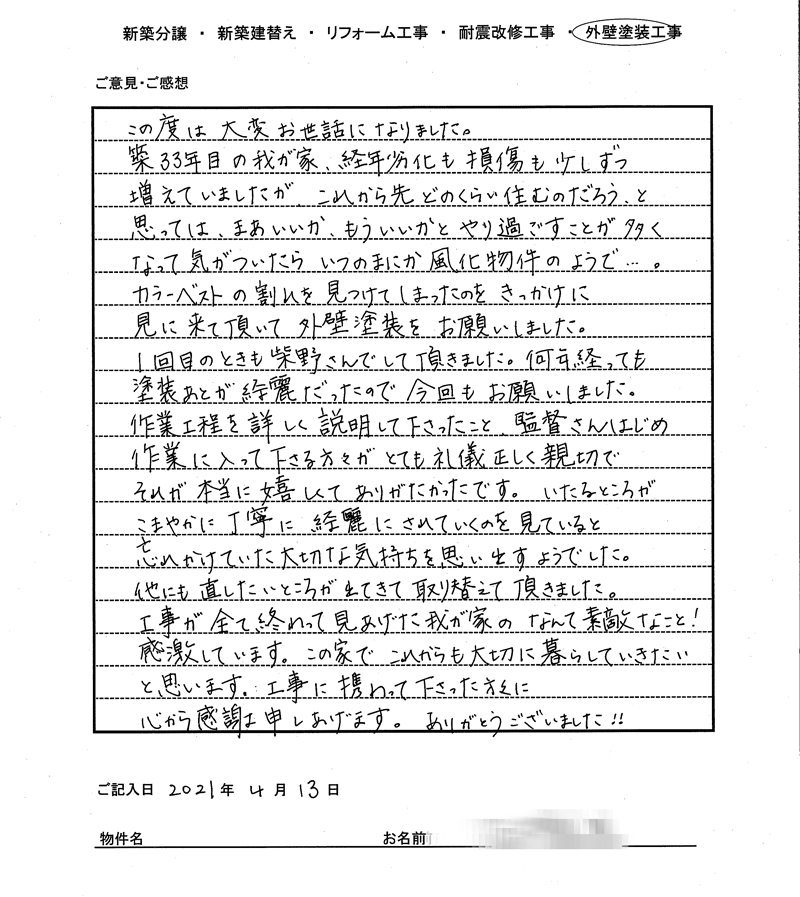 新築分譲 ・ 新築建替え ・ リフォーム工事 ・ 耐震改修工事 ・ 外壁塗装工事
ご意見・ご感想
この度は 大変お世話になりました。
築33年目の我が家、経年劣化も損傷も少しずつ
増えていましたが、これから先どのくらい住むのだろう、と
思っては、まあいいか、もういいかと やり過ごすことが多く
なって気がついたら いつのまにか 風化物件のようで…。
カラーベストの割れを見つけてしまったのをきっかけに
見に来て頂いて 外壁塗装をお願いしました。
1回目のときも柴野さんでして頂きました。何年経っても
塗装あとが綺麗だったので今回もお願いしました。
作業工程を詳しく説明して下さったこと、監督さんはじめ
作業に入って下さる方々がとても礼儀正しく親切で
それが本当に嬉しくてありがたかったです。いたるところが
こまやかに丁寧に 綺麗にされていくのを見ていると
忘れかけていた大切な気持ちを思い出すようでした。
他にも直したいところが出てきて取り替えて頂きました。
工事が全て終わって見あげた我が家の なんて素敵なこと!
感激しています。この家で これからも大切に暮らしていきたい
と思います。工事に携わって下さった方々に
心から感謝申しあげます。 ありがとうございました!!
ご記入日 2021年 4月 13日
物件名 お名前